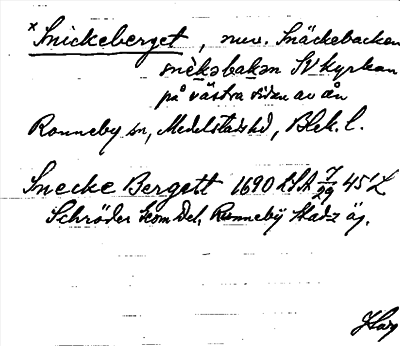 × Snickeberget, nuv. Snäckebacken
snèkəbakən SV kyrkan
på västra sidan av ån
Ronneby sn, Medelstads hd, Blek. l.
Snecke Bergett 1690 LSA 7/29 45' L
Schröder kom Del, Runnebÿ Stadz äg.